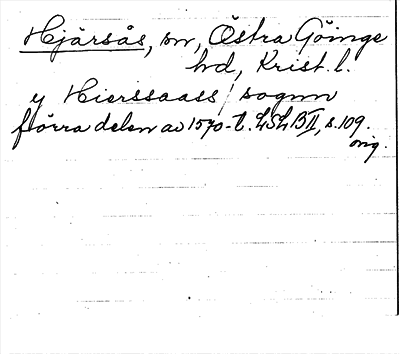 Hjärsås, sn, Östra Göinge
hd, Krist. l.
y Hierssaass / sognn
förra delen av 1570-t. LSLBII, s. 109.
orig.